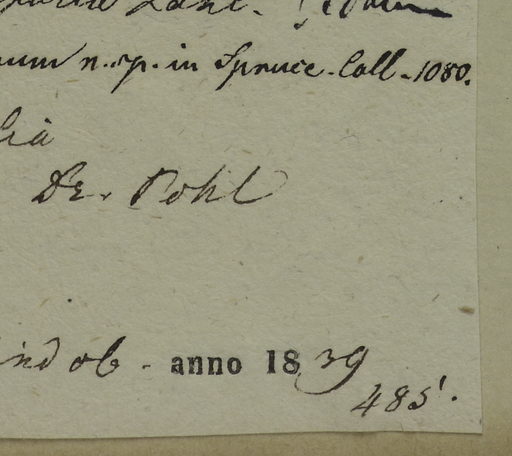 n. sp. in Spruce. Coll. 1080.
Dr. Pohl
indob - anno 1839
485.